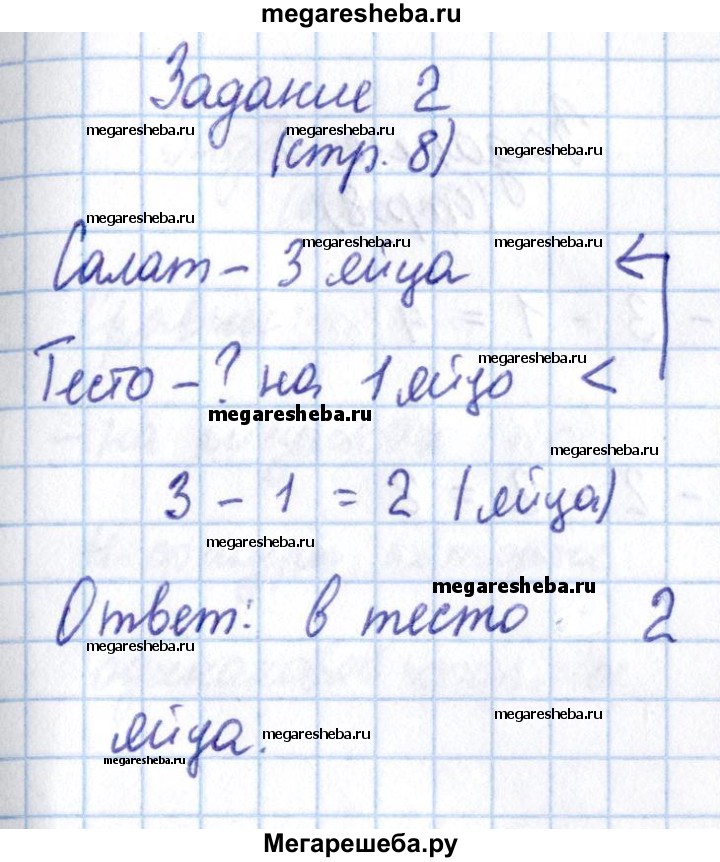 megaresheba.ru
Задание 2
megaresheba.ru megaresheba.ru
(стр. 8) megaresheba.ru
megaresheba.ru
Салат – 3 яйца
megaresheba.ru megaresheba.ru
megaresheba.ru
Тесто – ? на 1 яйцо <
megaresheba.ru
megaresheba.ru
3 – 1 = 2 (яйца)
megaresheba.ru
megaresheba.ru
Ответ: в тесто 2
megaresheba.ru
megaresheba.ru
яйца. megaresheba.ru
megaresheba.ru
Мегарешеба.ру